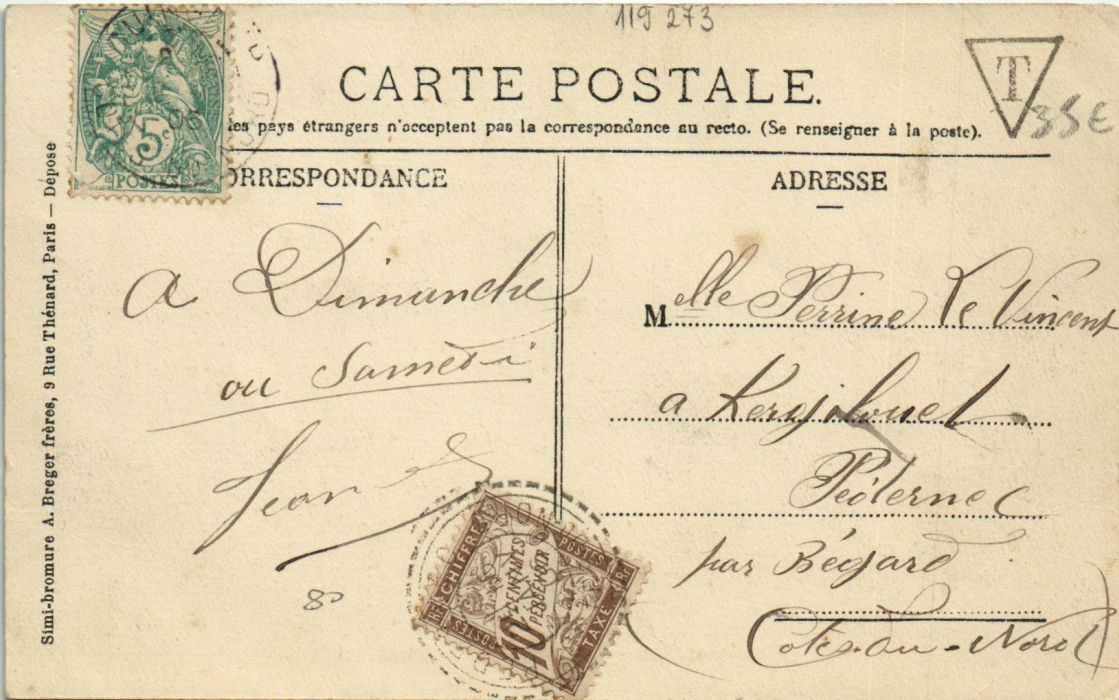 119 273
CARTE POSTALE.
T
35€
les pays étrangers n'acceptent pas la correspondance au recto. (Se renseigner à la poste).
ORRESPONDANCE
ADRESSE
5c
POSTES
05
a Dimanche
ou Samedi
Jean
80
Melle Perrine Le Vincent
a Kergilouet
Péderne c
par Bégard
Cotes-du-Nord
CHIFFRE
10 CENTIMES
PERCEVOIR
TAXE
POSTES
Simi-bromure A. Breger frères, 9 Rue Thénard, Paris — Déposé